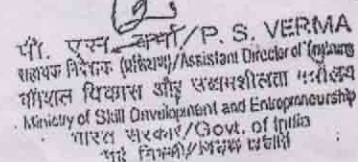 पी. एस. वर्मा/P. S. VERMA
सहायक निदेशक (प्रशिक्षण)/Assistant Director of Training
कौशल विकास और उद्यमशीलता मंत्रालय
Ministry of Skill Development and Entrepreneurship
भारत सरकार/Govt. of India
नई दिल्ली/